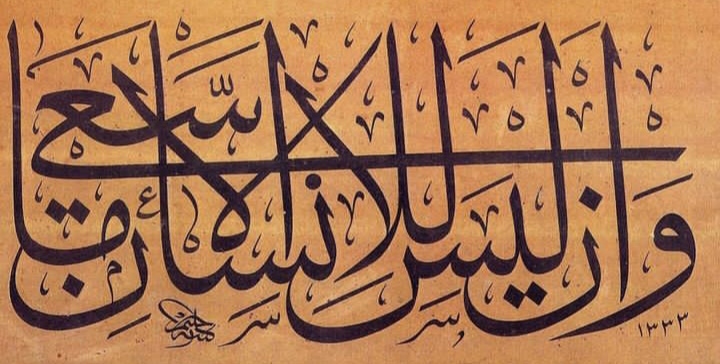 وَأَن لَّيْسَ لِلْإِنسَانِ إِلَّا مَا سَعَى
١٣٣٣